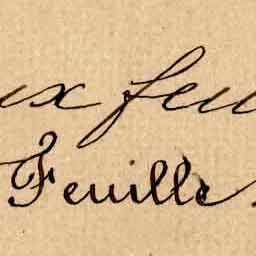 ux feu
Feuille.